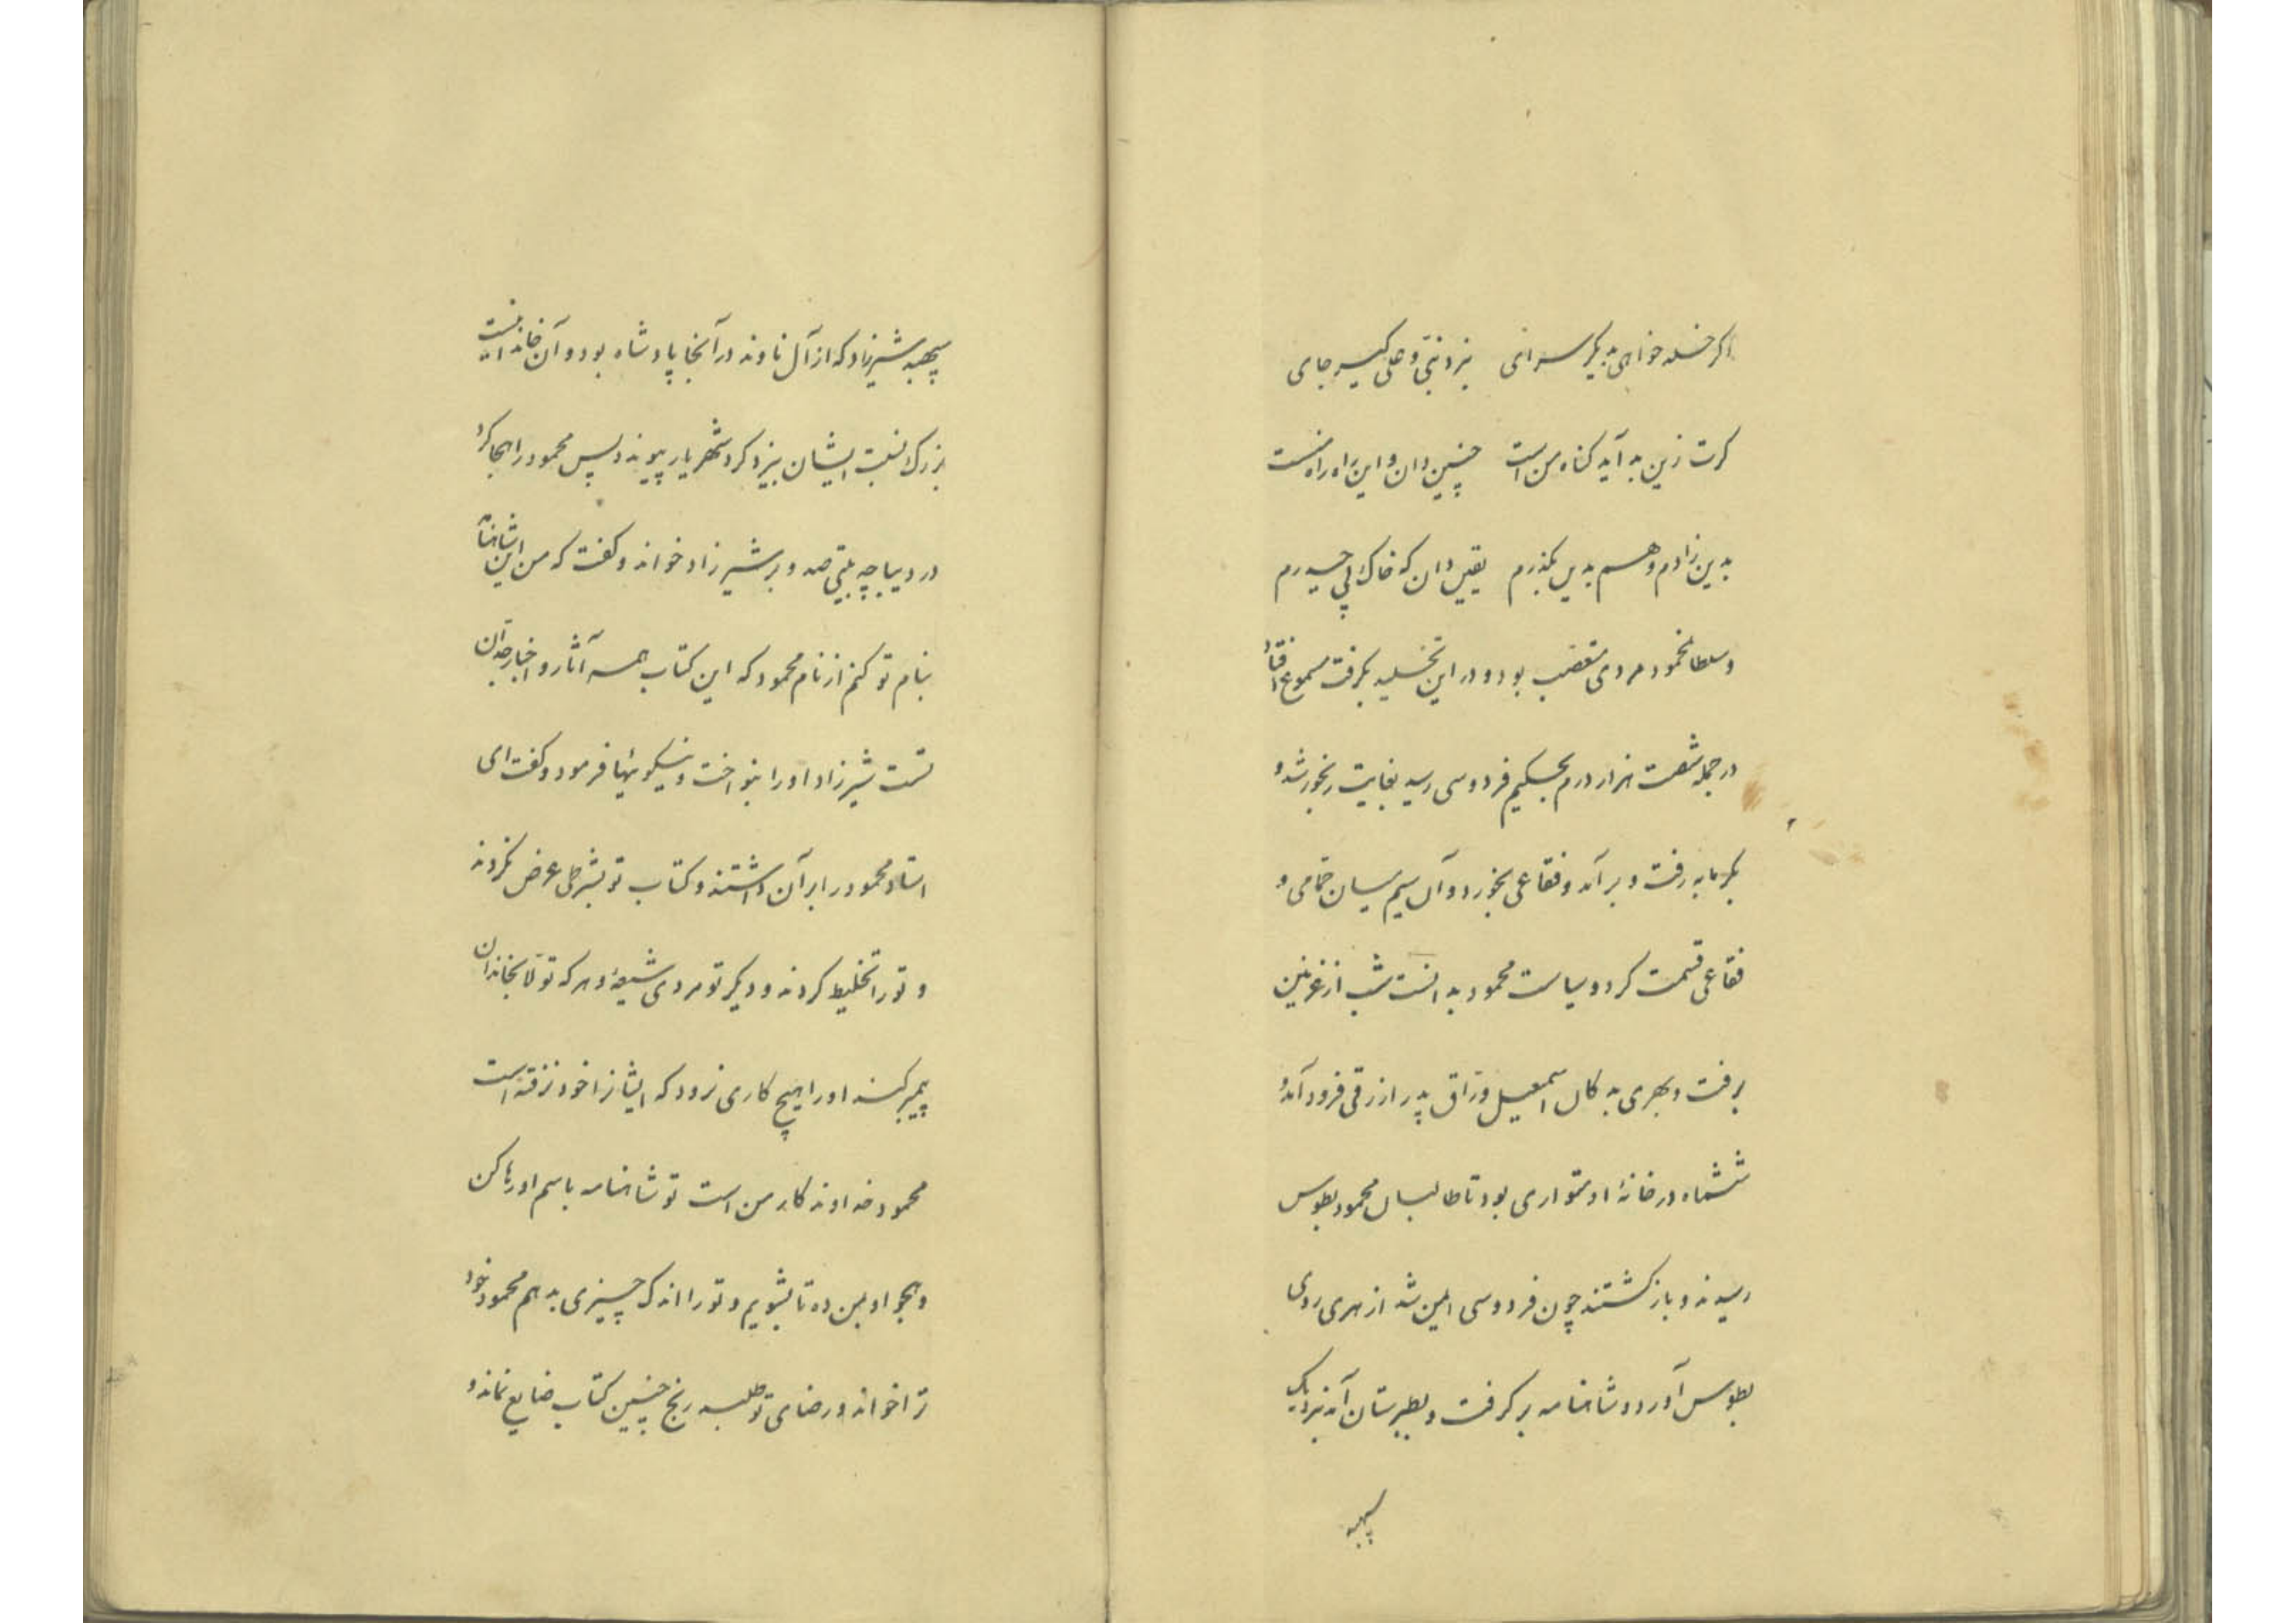 اگر خلد خواهی بدیگر سرای بنزد نبی و علی گیر جای
گرت زین بد آید گناه من است چنین دان و این راه راه منست
بدین زادم و هم بدین بگذرم یقین دان که خاک پی حیدرم
و سلطان محمود مردی متعصب بود و در این تخلید بگرفت مسموع افتاد
در جمله شصت هزار درم بحکیم فردوسی رسید بغایت رنجور شد و
بگرمابه رفت و برآمد و فقاعی بخورد و آن سیم میان حمامی و
فقاعی قسمت کرد و سیاست محمود بدانست شب از غزنین
برفت و بهری بدکان اسمعیل وراق پدر ازرقی فرود آمد و
ششماه در خانهٔ او متواری بود تا طالبان محمود بطوس
رسیدند و بازگشتند چون فردوسی ایمن شد از هری روی
بطوس آورد و شاهنامه برگرفت و بطبرستان آمد نزدیک
سپهبد
سپهبد شیرزاد که از آل ناوند در آنجا پادشاه بود و آن خاندانیست
بزرگ نسبت ایشان بیزدگرد شهریار پیوندد پس محمود را هجا کرد
در دیباچه بیتی صد و بر شیرزاد خواند و گفت که من این شاهنامه
بنام تو کنم از نام محمود که این کتاب همه آثار و اخبار جدان
تست شیرزاد او را بنواخت و نیکوئیها فرمود و گفت ای
استاد محمود را بر آن داشتند و کتاب تو بشرطی عرض نکردند
و تو را تخلیط کردند و دیگر تو مردی شیعهٔ و هر که تولا بخاندان
پیمبر کند او را هیچ کاری نرود که ایشانرا خود نرفته است
محمود خداوندکار من است تو شاهنامه باسم او رها کن
و هجو او بمن ده تا بشویم و تو را اندک چیزی بدهم محمود خود
ترا خواند و رضای تو طلبد رنج چنین کتاب ضایع نماند و